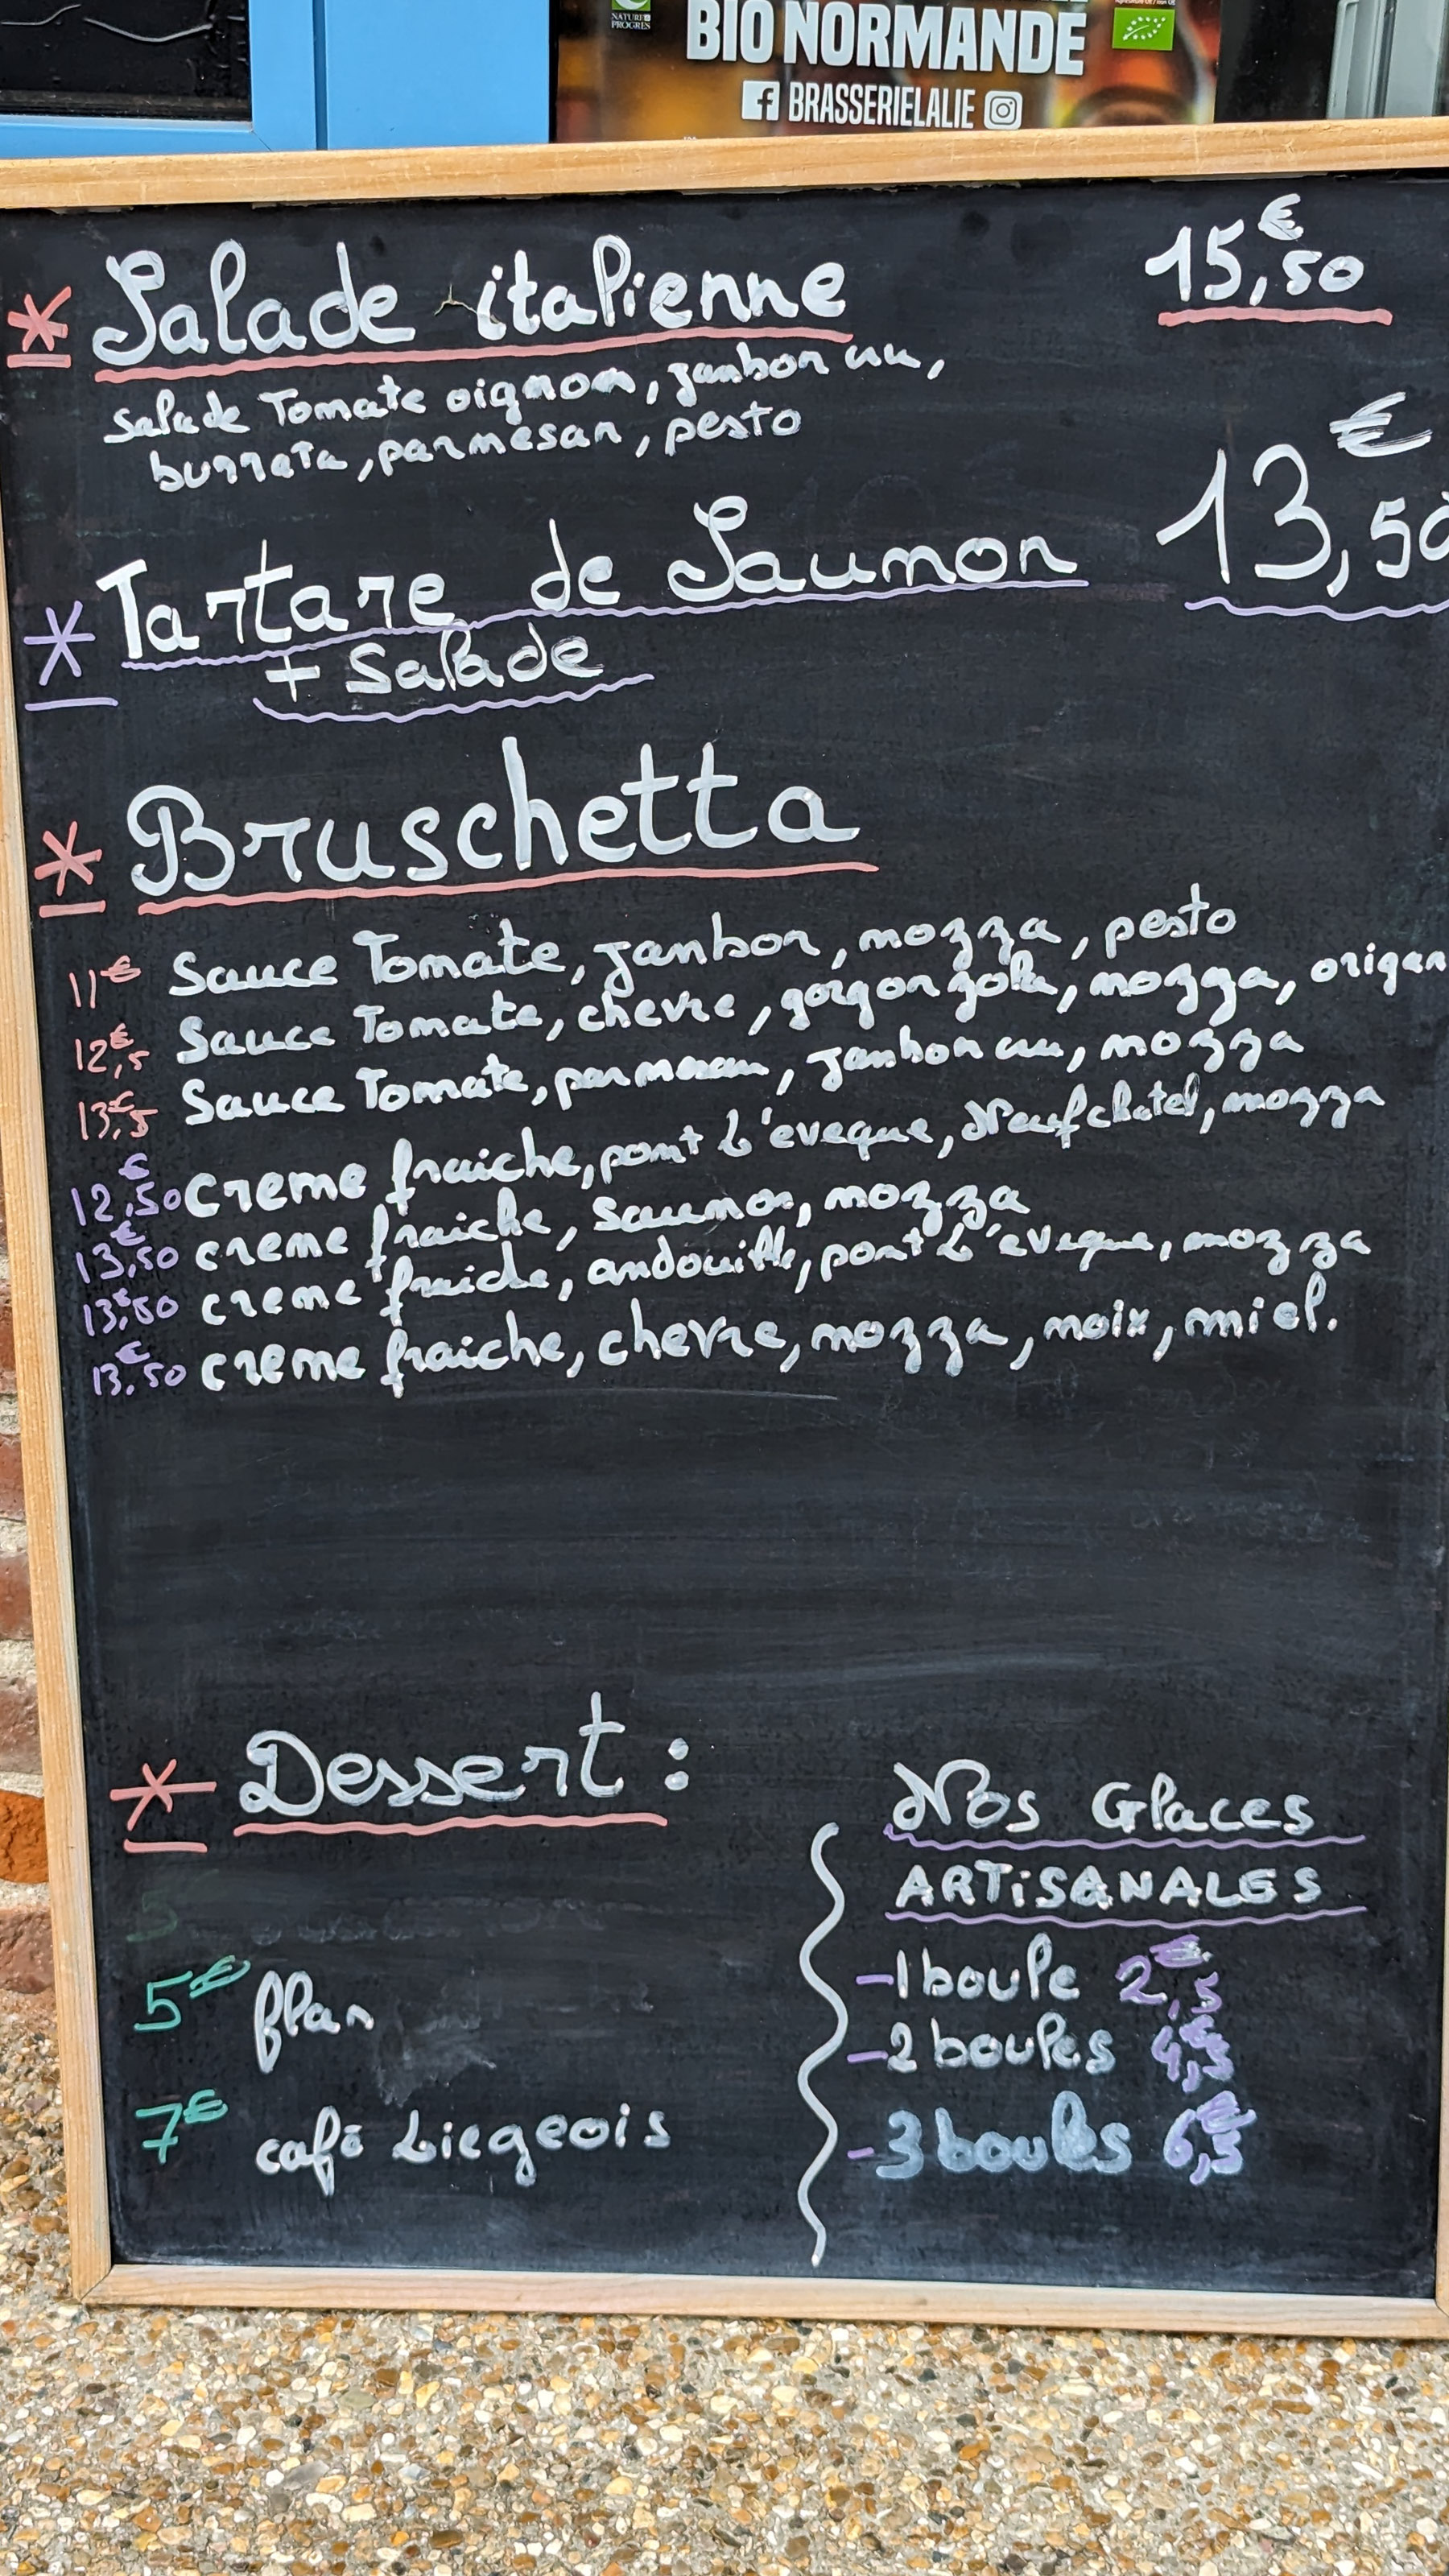 NATURE & PROGRÈS
BIO NORMANDE
BRASSERIELALIE
* Salade italienne 15,50€
Salade Tomate oignon, jambon cru,
burrata, parmesan, pesto
* Tartare de Saumon 13,50€
+ Salade
* Bruschetta
11€ Sauce Tomate, jambon, mozza, pesto
12,5€ Sauce Tomate, chevre, gorgonzola, mozza, origan
13,5€ Sauce Tomate, parmesan, jambon cru, mozza
12,50€ creme fraiche, pont L'eveque, Neufchatel, mozza
13,50€ creme fraiche, saumon, mozza
13,50€ creme fraiche, andouille, pont L'eveque, mozza
13,50€ creme fraiche, chevre, mozza, noix, miel.
* Dessert :
5
5€ flan
7€ café Liegeois
Nos Glaces
ARTiSANALES
-1 boule 2,5€
-2 boules 4,5€
-3 boules 6,5€